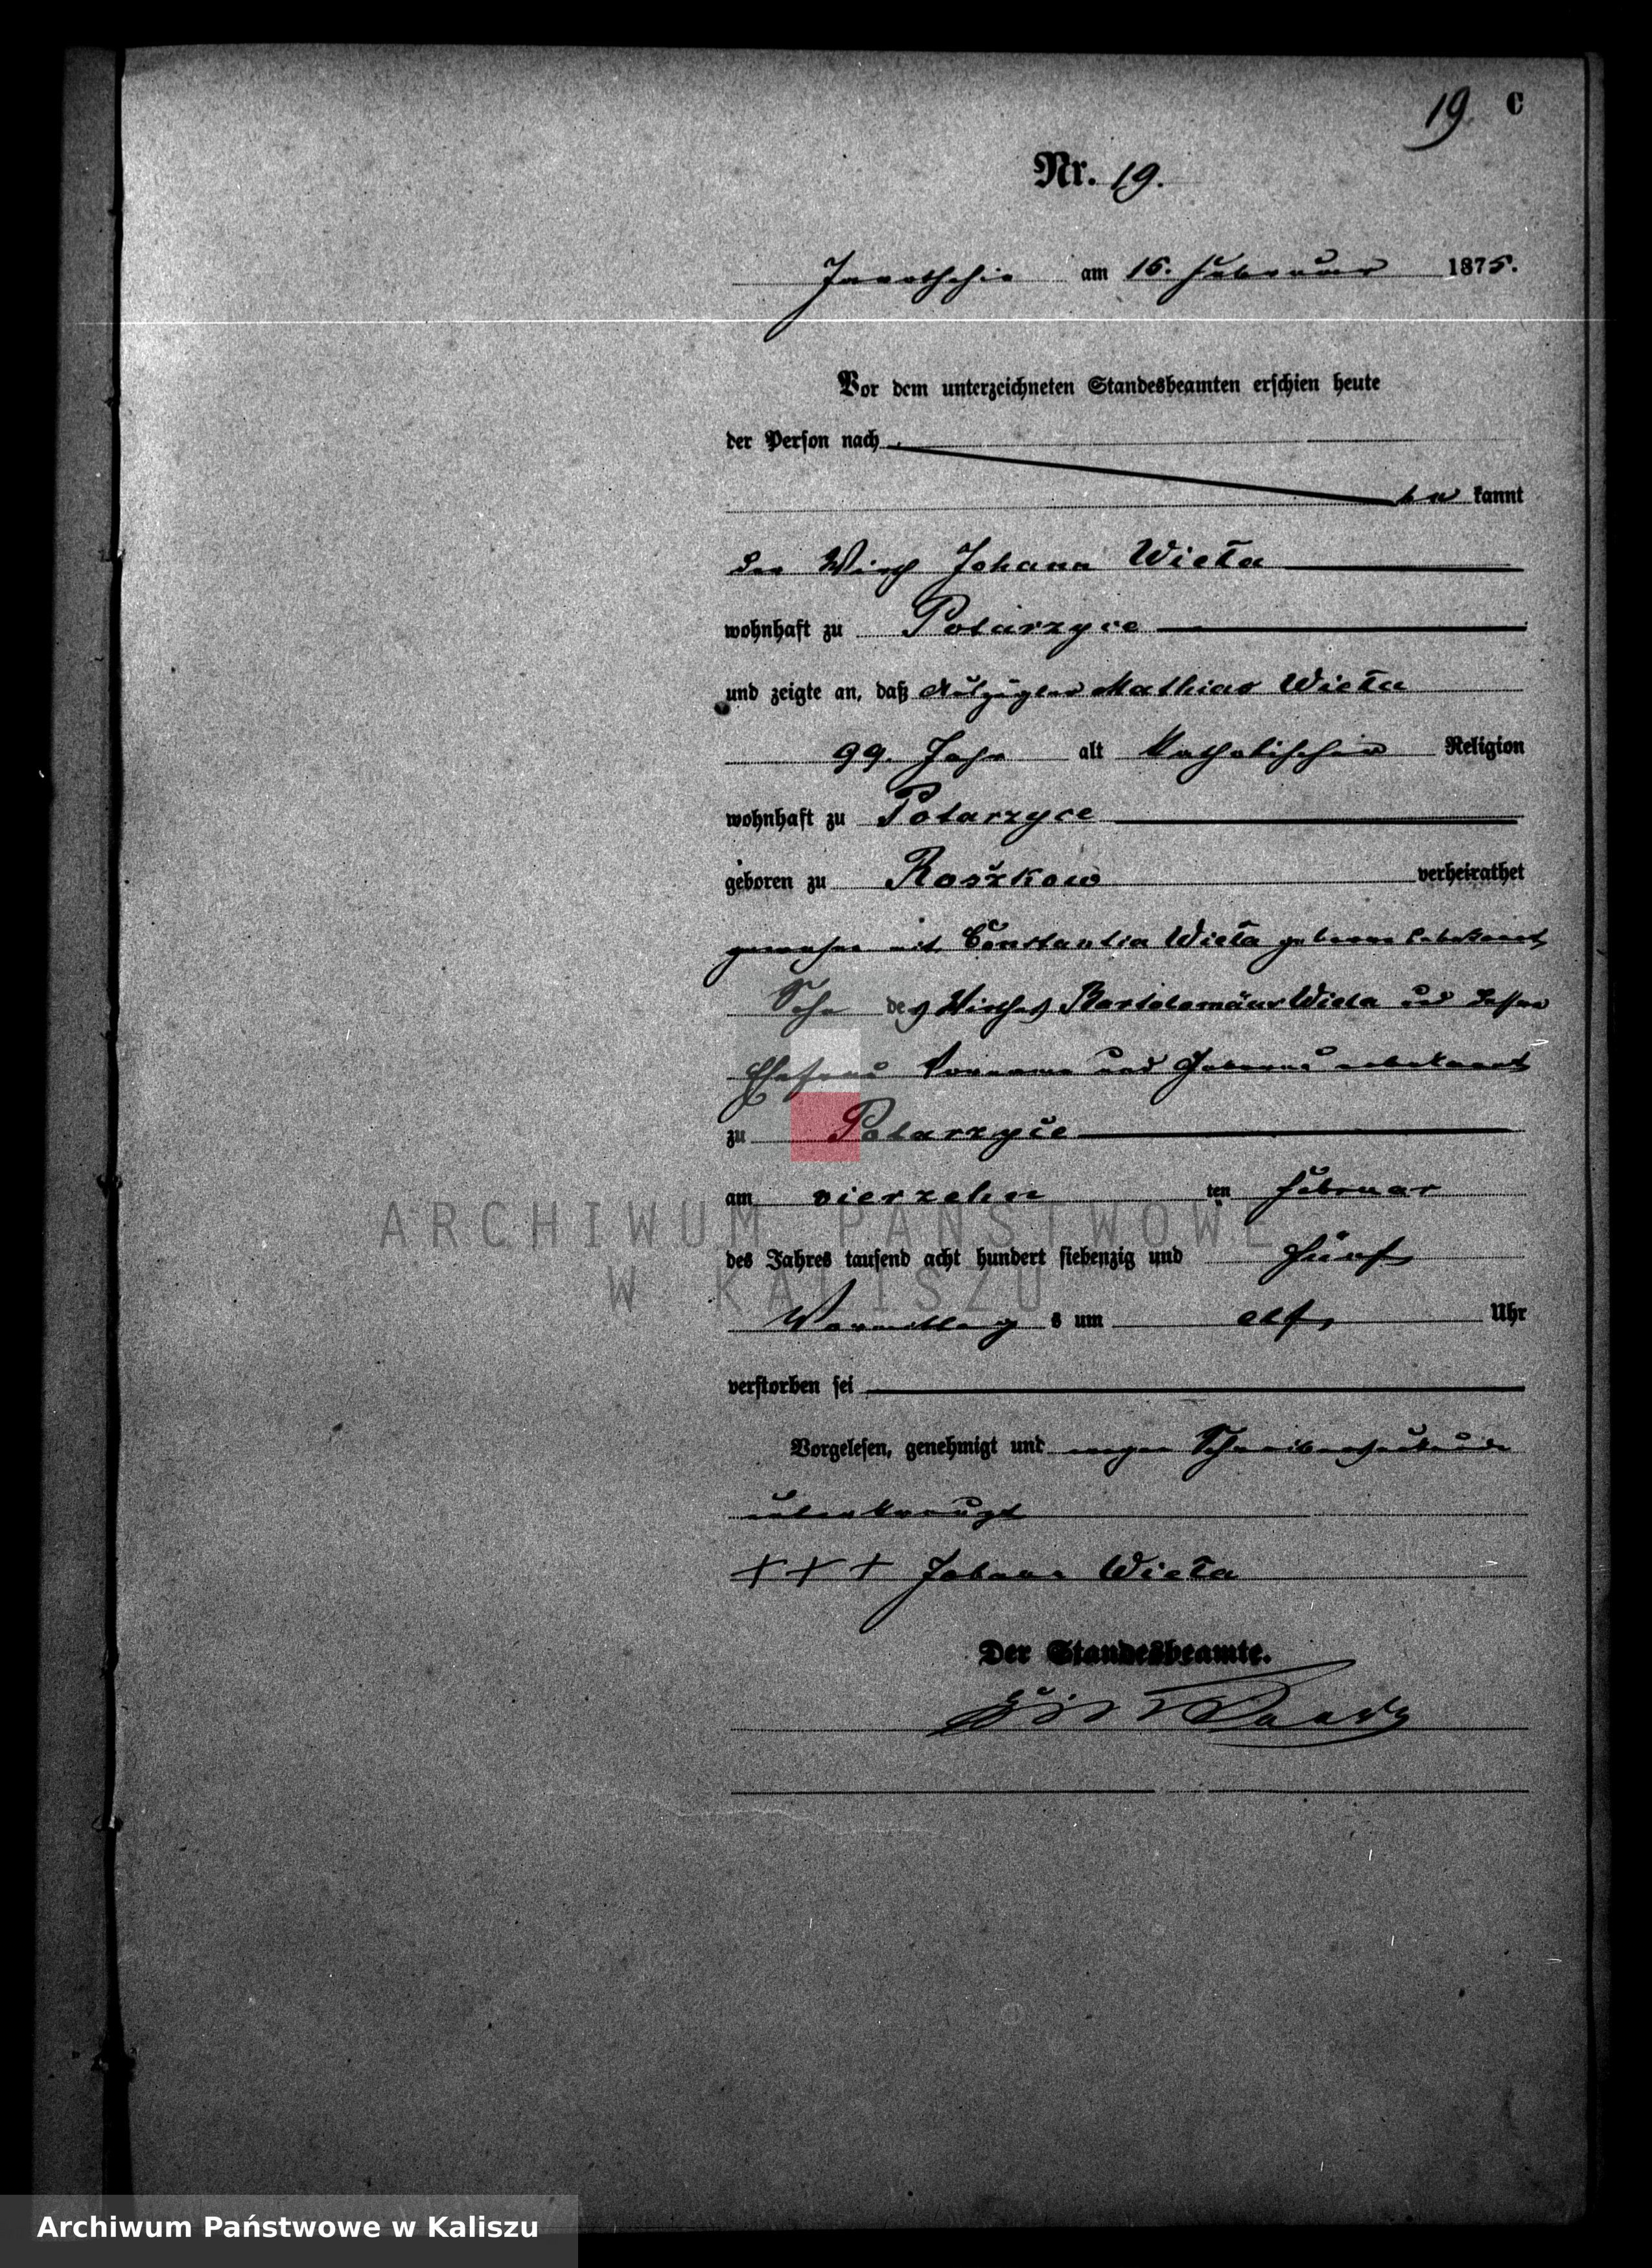 19 C
Nr. 19.
Jarotschin am 16. Februar 1875.
Vor dem unterzeichneten Standesbeamten erschien heute
der Person nach
be kannt
der Wirth Johann Wieła
wohnhaft zu Potarzyce
und zeigte an, daß Auszügler Mathias Wieła
99. Jahr alt Katholischer Religion
wohnhaft zu Potarzyce
geboren zu Roszkow verheirathet
gewesen mit Constantia Wieła geborene
Sohn des Wirthes Bartolomäus Wieła und dessen
Ehefrau Vorname und Geburts unbekannt
zu Potarzyce
am vierzehn ten Februar
des Jahres tausend acht hundert siebenzig und fünf
Vormittag s um elf Uhr
verstorben sei
Vorgelesen, genehmigt und wegen Schreibensunkunde
unterkreuzt
+++ Johann Wieła
Der Standesbeamte.
ARCHIWUM PAŃSTWOWE
W KALISZU
Archiwum Państwowe w Kaliszu